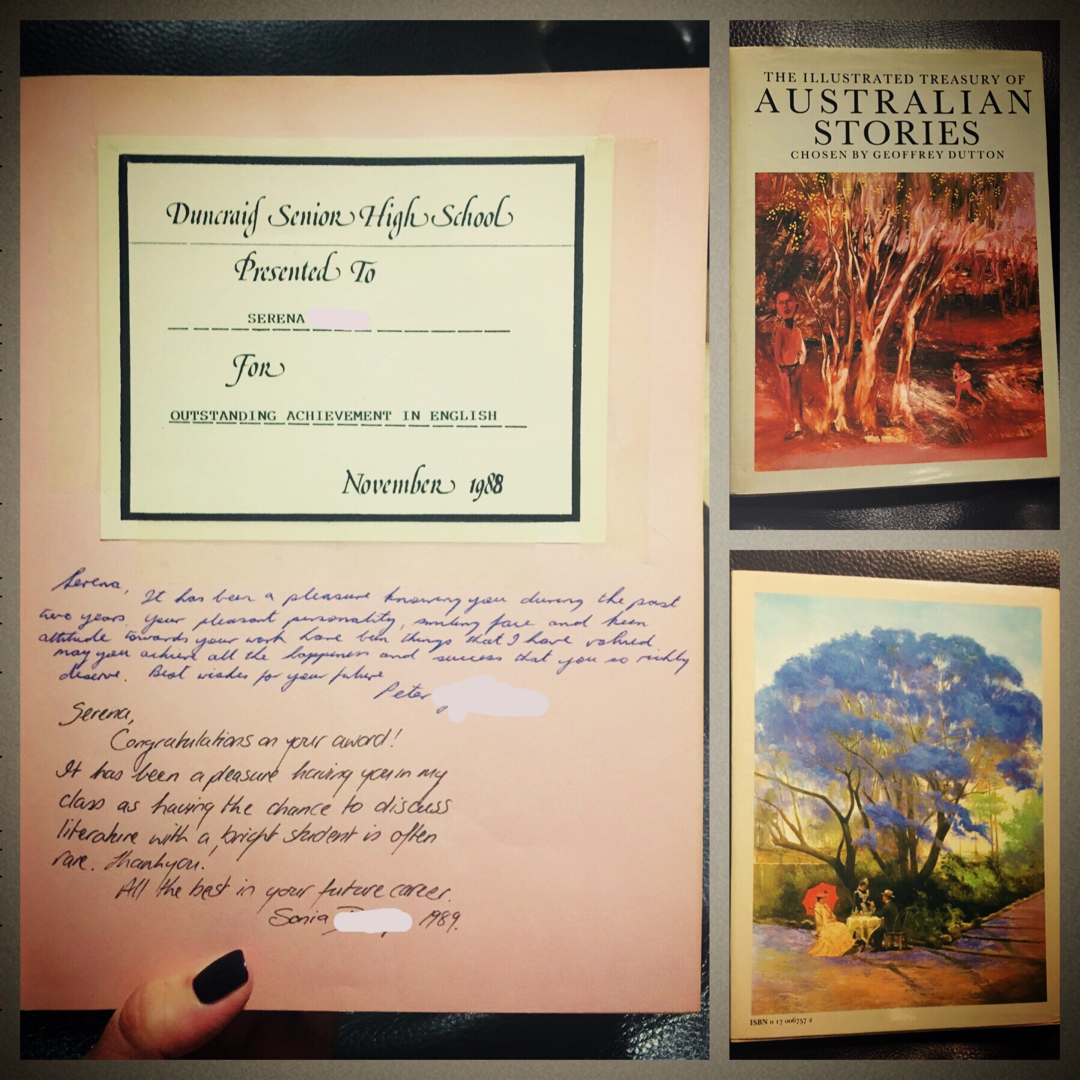 Duncraig Senior High School
Presented To
SERENA
For
OUTSTANDING ACHIEVEMENT IN ENGLISH
November 1988
Serena, It has been a pleasure knowing you during the past
two years. Your pleasant personality, smiling face and keen
attitude towards your work have been things that I have valued.
May you achieve all the happiness and success that you so richly
deserve. Best wishes for your future
Peter
Serena,
Congratulations on your award!
It has been a pleasure having you in my
class as having the chance to discuss
literature with a bright student is often
rare. Thankyou!
All the best in your future career.
Sonia 1989.
THE ILLUSTRATED TREASURY OF
AUSTRALIAN
STORIES
CHOSEN BY GEOFFREY DUTTON
ISBN 0 17 006757 2